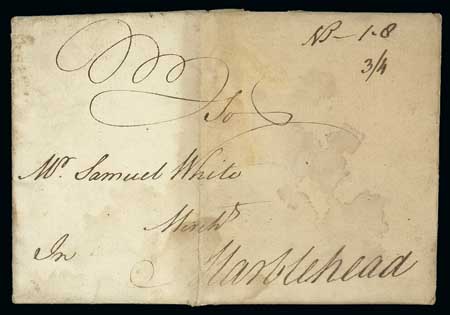 NB - 1·8
3/4
To
Mr. Samuel White
Mercht
In Marblehead